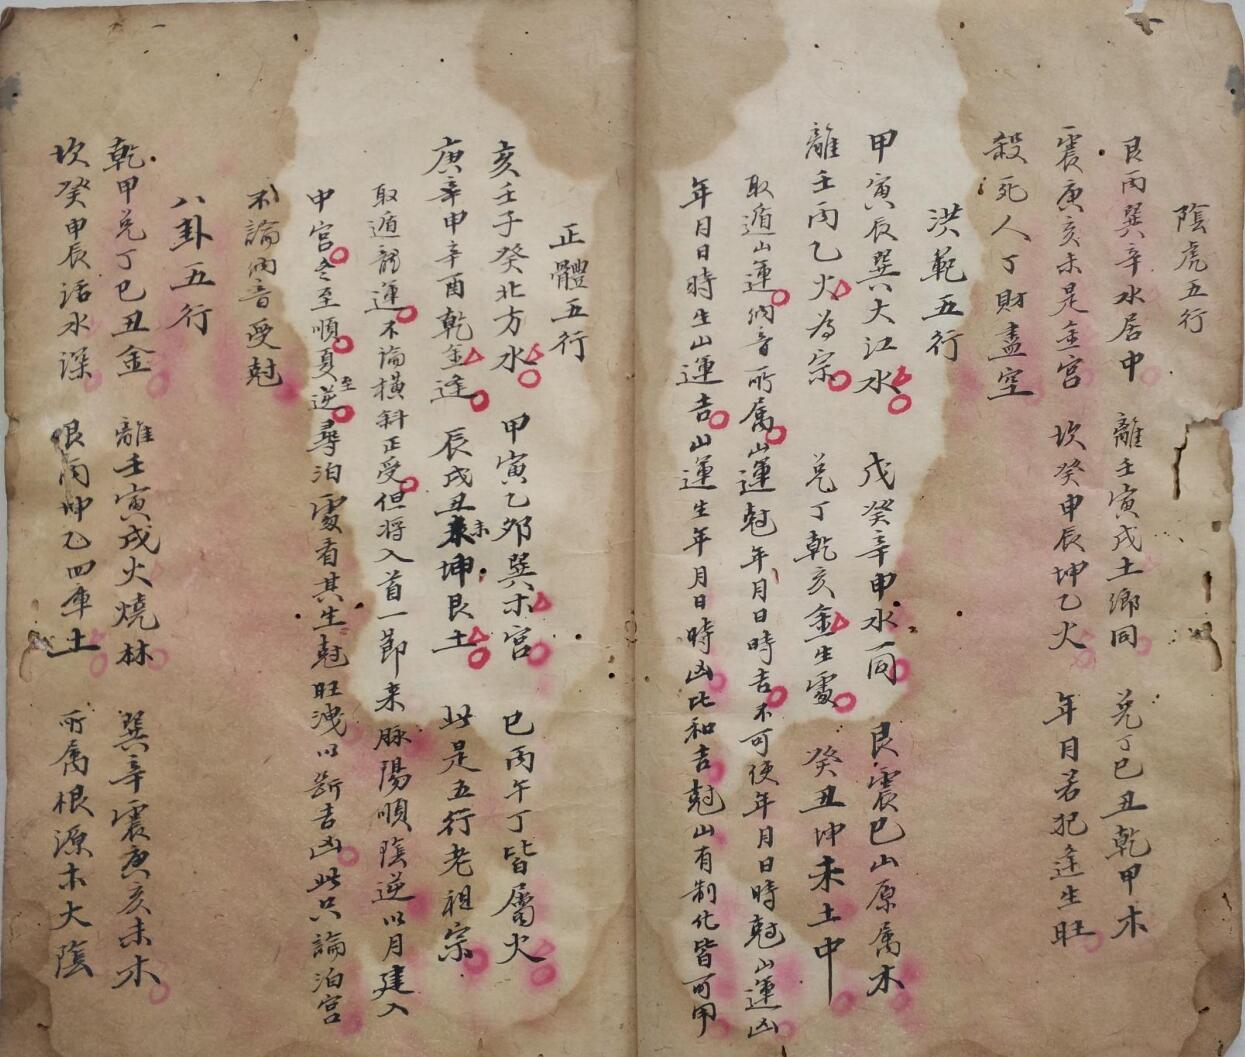 陰虎五行
艮丙巽辛水居中 離壬寅戌土鄉同 兌丁巳丑乾甲木
震庚亥未是金宮 坎癸申辰坤乙火 年月若犯逢生旺
殺死人丁財盡空
洪範五行
甲寅辰巽大江水 戌癸辛申水一同 艮震巳山原属木
離壬丙乙火為宗 兌丁乾亥金生處 癸丑坤未土中
取遁山運納音所属山運尅年月日時吉不可使年月日時尅山運凶
年月日時生山運吉山運生年月日時凶比和吉尅山有制化皆可用
正體五行
亥壬子癸北方水 甲寅乙卯巽木宮 巳丙午丁皆屬火
庚辛申辛酉乾金逢 辰戌丑未坤艮土 此是五行老祖宗
取遁龍運不論橫斜正受但将入首一節来脉陽順陰逆以月建入
中宮冬至順夏至逆尋泊處看其生尅旺洩以斷吉凶此只論泊宮
不論納音受尅
八卦五行
乾甲兌丁巳丑金 離壬寅戌火燒林 巽辛震庚亥未木
坎癸申辰活水深 艮丙坤乙四庫土 所属根源木大陰